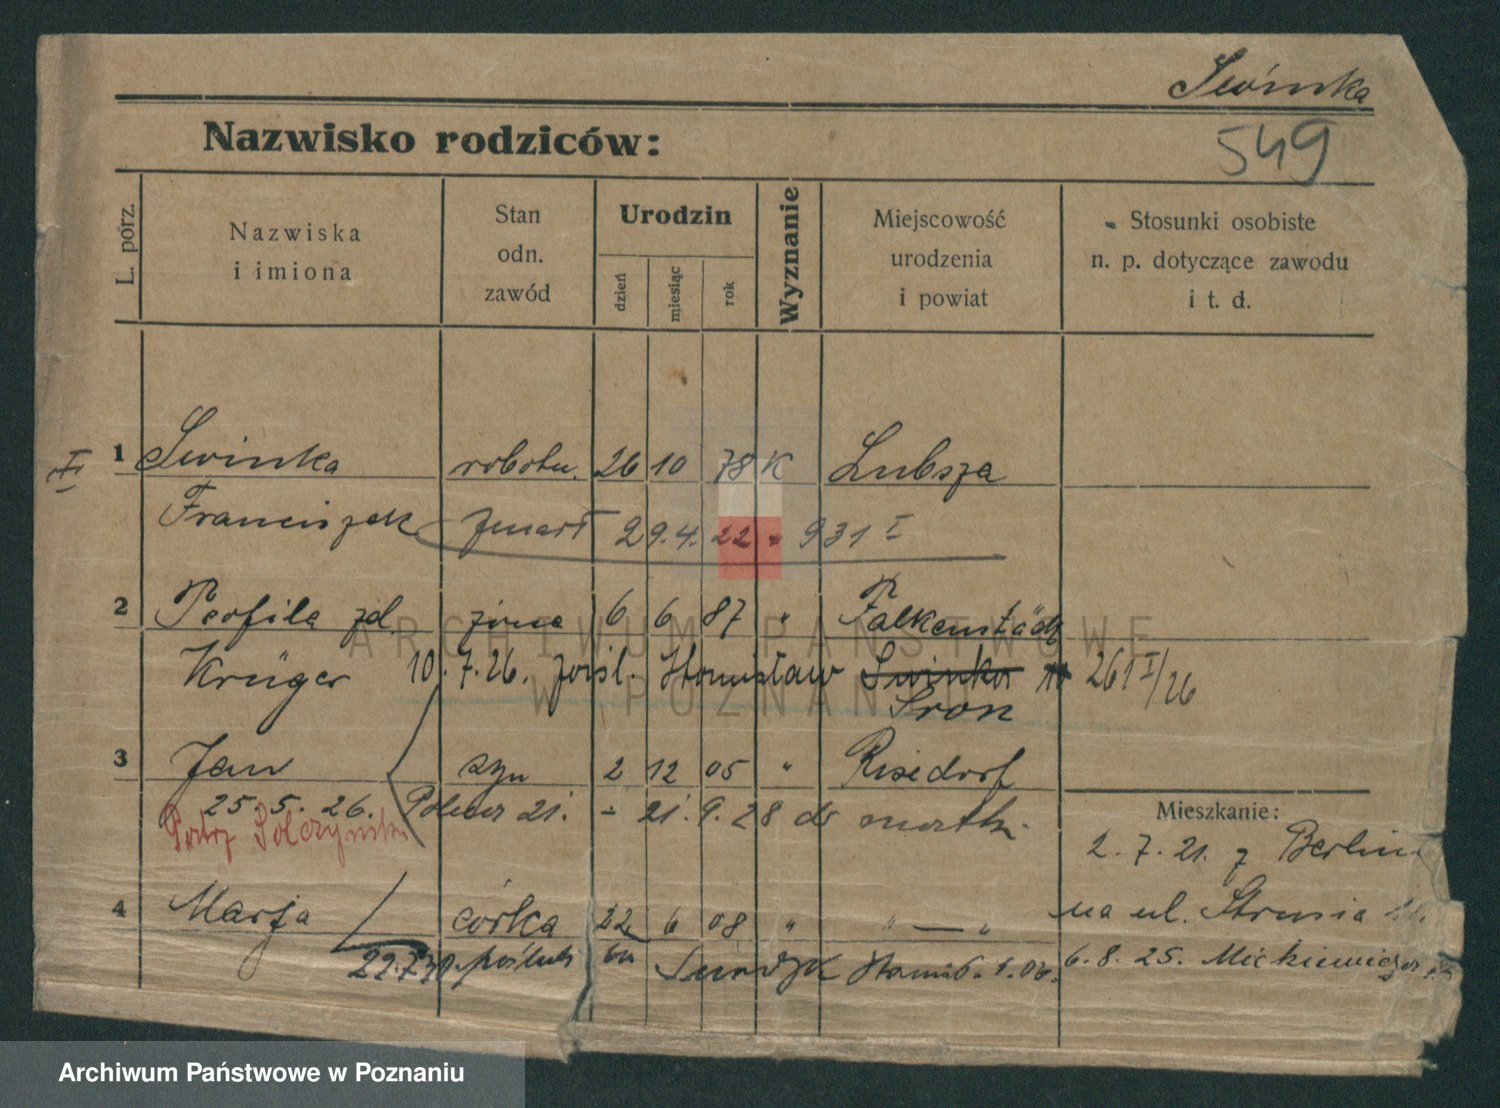 Swinka
549
Nazwisko rodziców:
L. porz.
Nazwiska
i imiona
Stan
odn.
zawód
Urodzin
dzień
miesiąc
rok
Wyznanie
Miejscowość
urodzenia
i powiat
Stosunki osobiste
n. p. dotyczące zawodu
i t. d.
II 1 Swinka robotn. 26 10 78 K Lubsza
Franciszek zmarł 29.4.22 = 931 I
2 Teofila zd. żona 6 6 87 " Falkenstädt
Krüger 10.7.26. zaśl. Stanisław Swinka 261 I/26
Sron
3 Jan syn 2 12 05 " Risedorf
25.5.26. 21. - 21.9.28 do matki.
Mieszkanie:
2.7.21. z Berlin
4 Marja córka 22 6 08 " " — "
na ul. Strusia
22.7.30. poślub. 6.1.06.
6.8.25. Mickiewicza
ARCHIWUM PAŃSTWOWE
W POZNANIU
Archiwum Państwowe w Poznaniu